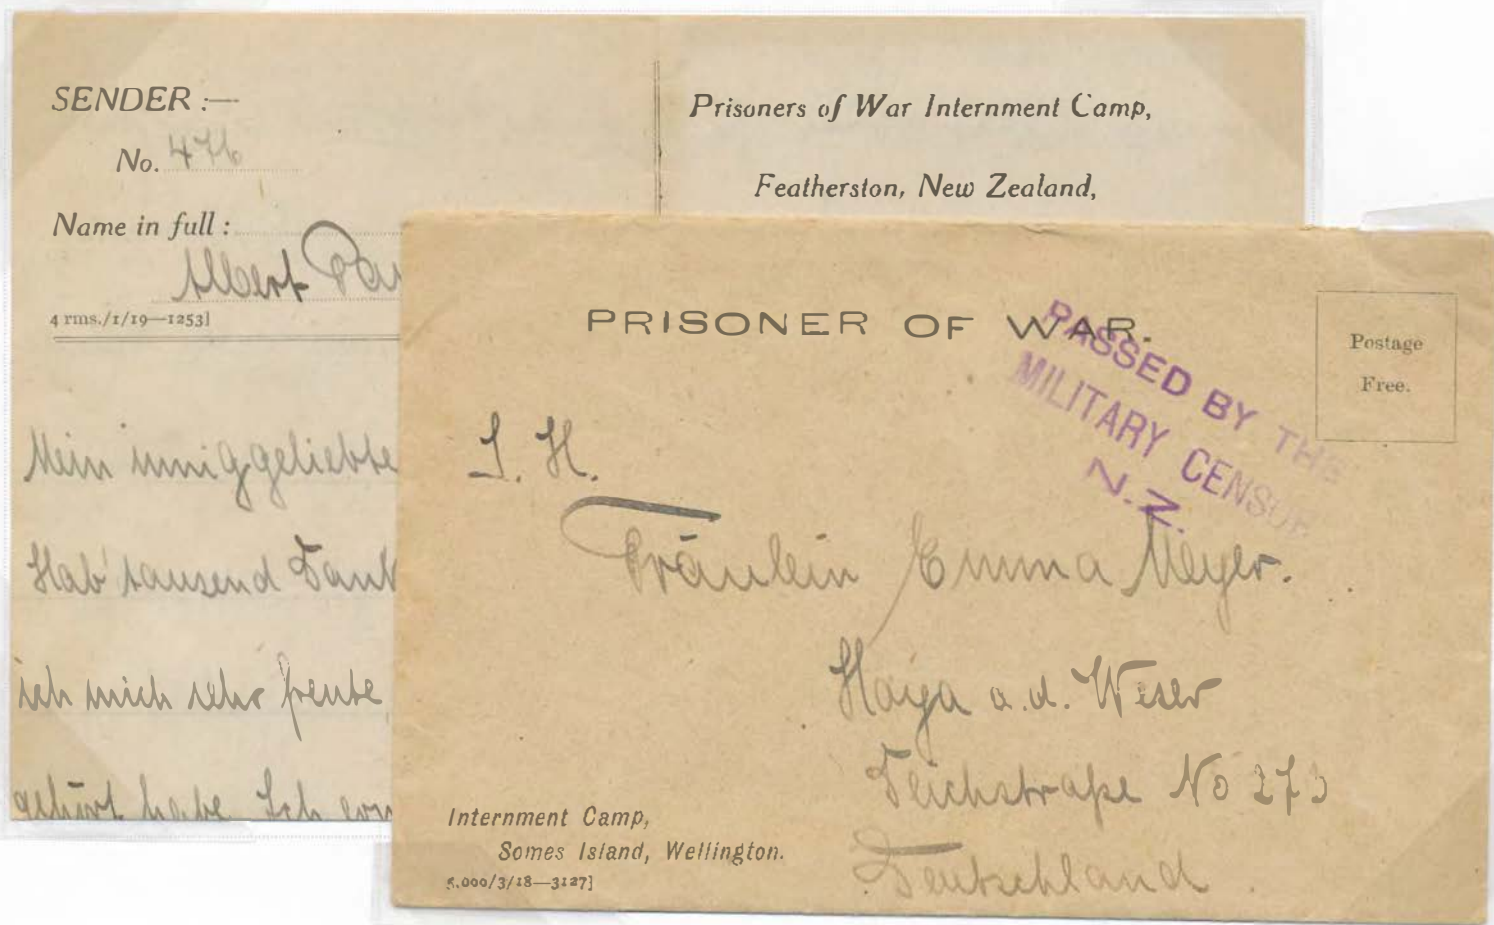 SENDER :—
No. 476
Name in full :
Albert
4 rms./1/19—1253]
Prisoners of War Internment Camp,
Featherston, New Zealand,
Mein inniggeliebte
Hab' tausend Dank
ich mich sehr freute
gehört habe Ich
PRISONER OF WAR.
Postage
Free.
PASSED BY THE
MILITARY CENSOR
N.Z.
S. H.
Fräulein Emma Meyer.
Hoya a.d. Weser
Deichstraße No 273
Deutschland
Internment Camp,
Somes Island, Wellington.
5,000/3/18—3127]